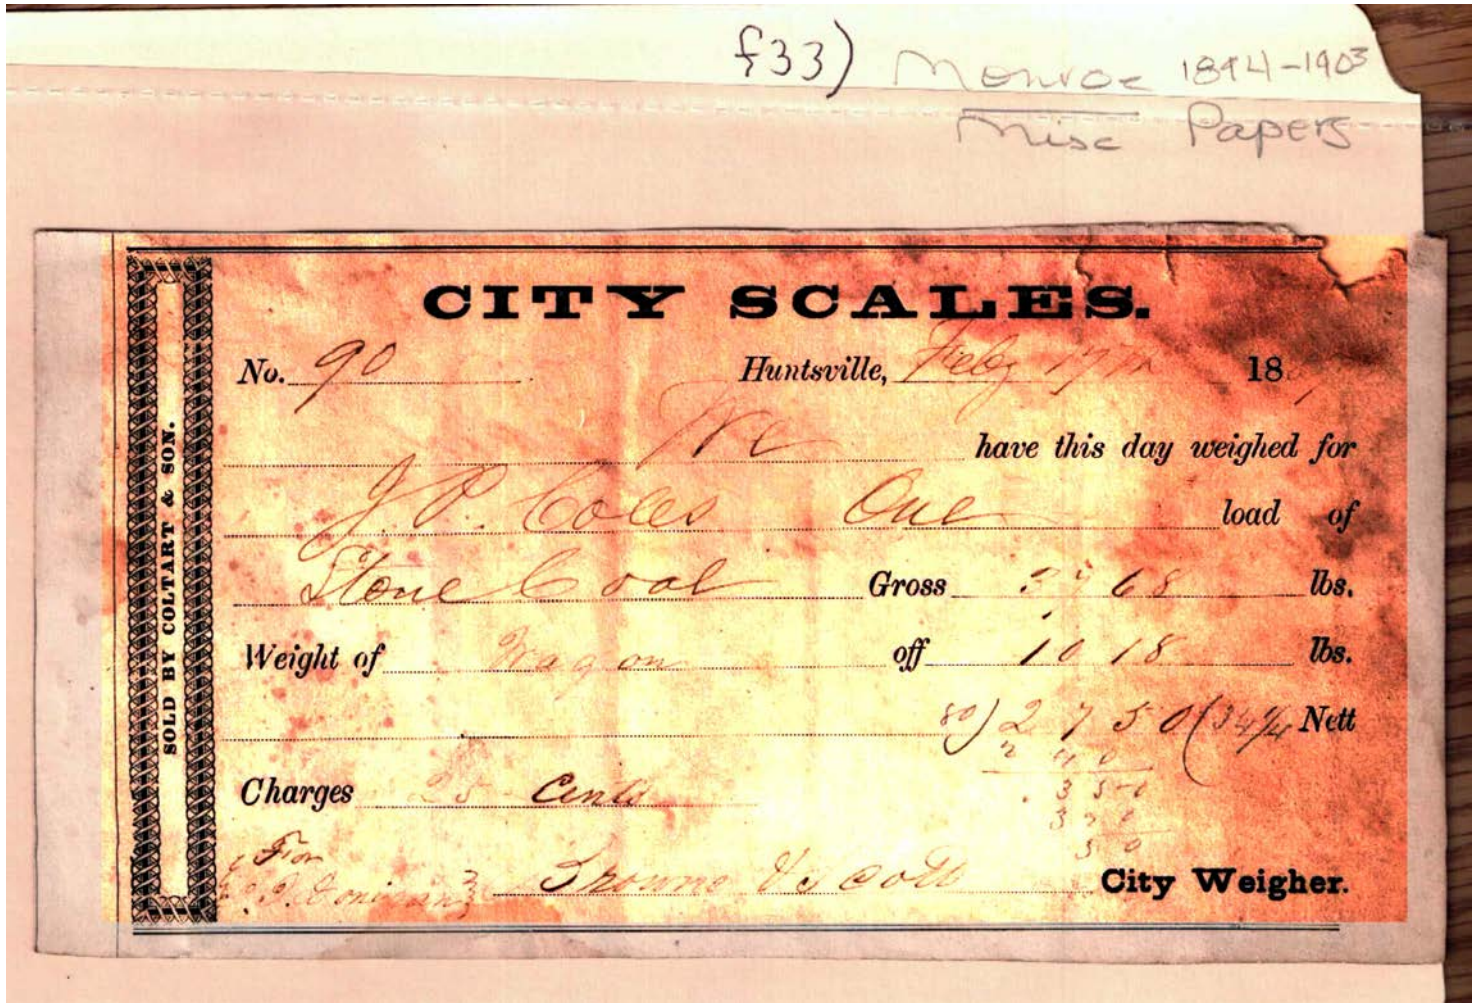 f33) Monroe 1894-1903
Misc Papers
CITY SCALES.
No. 90 Huntsville, Feby 17th 18
We have this day weighed for
J. P. Coles One load of
Stone Coal Gross 3768 lbs.
Weight of Wagon off 1018 lbs.
80) 2750 (34 1/4 Nett
240
350
320
30
Charges 25 Cents
For
City Weigher.
SOLD BY COLTART & SON.